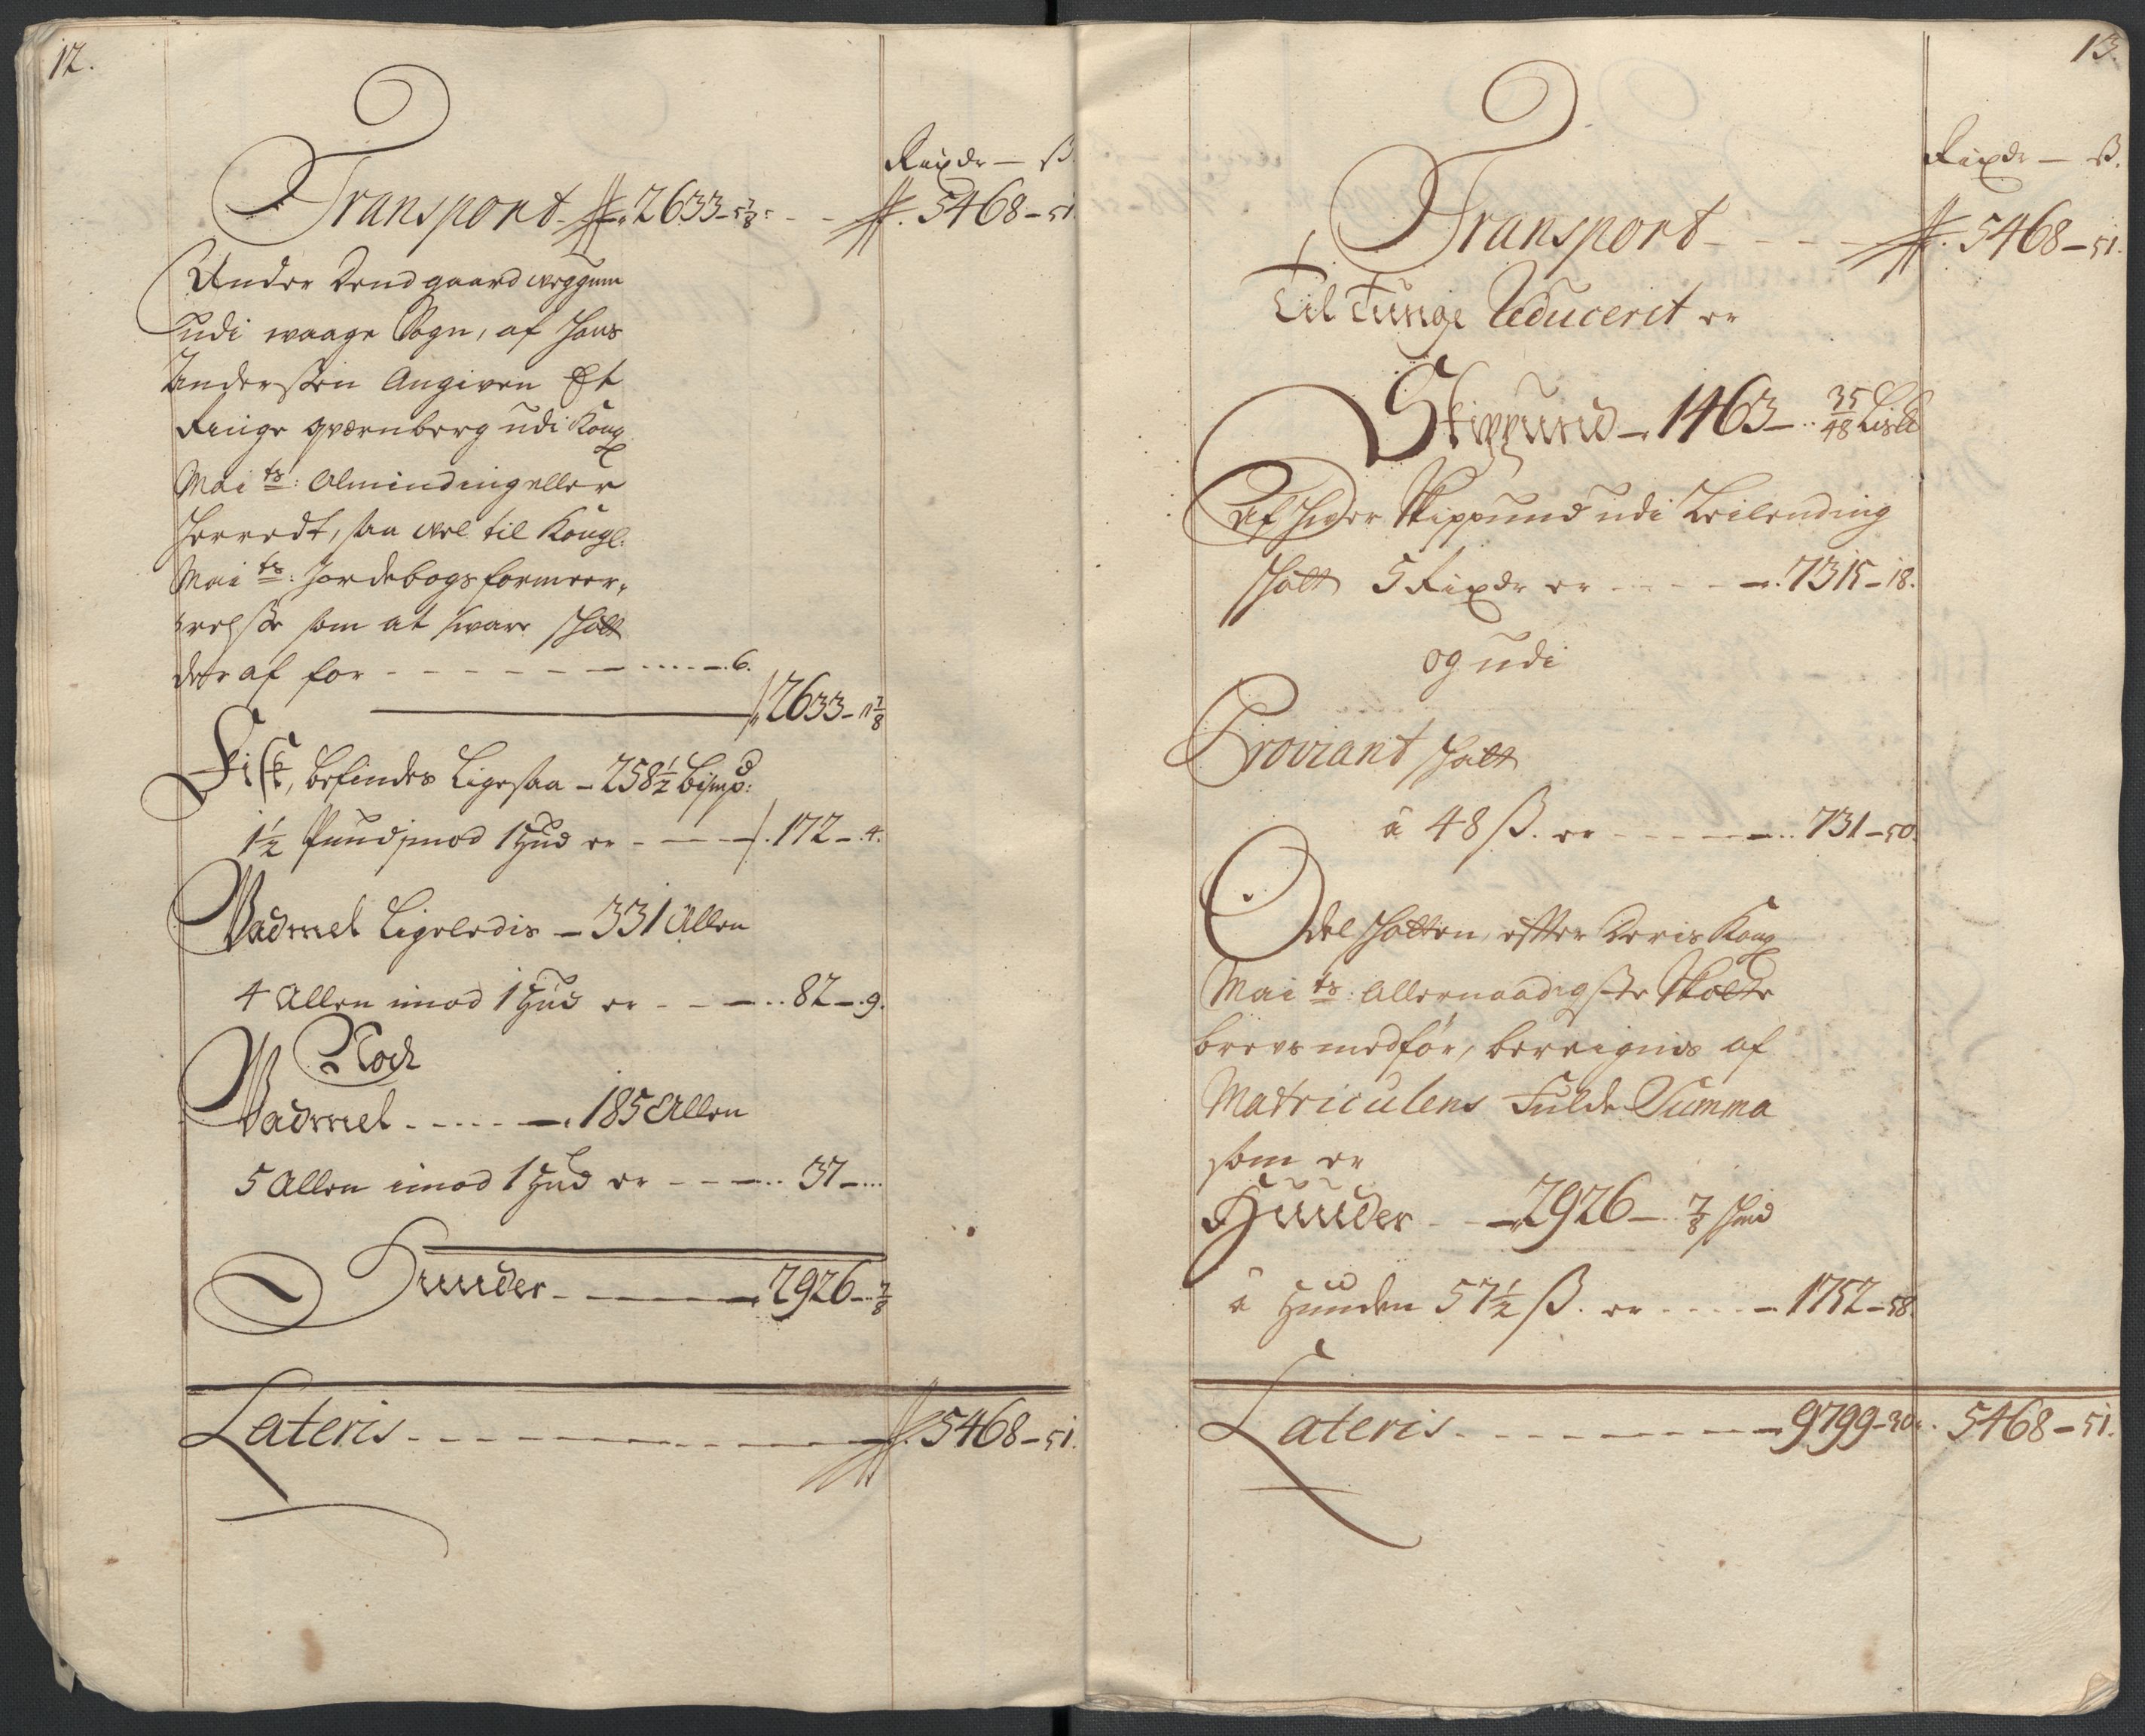 12.
Rixdr — ß.
Transport — 2633 — 5 7/8 — 5468 — 51.
Under Dend gaard Veggum
udi waage Sogn, af Hans
Anderssen Angiven Et
Ringe qværnberg udi Kong
Mai ts: Alminding eller
Herredt, saa vel til Kongl:
Mai ts: Jordebogs formeer,,
relsse som at svare skatt
der af for — 6.
2633 — 11 7/8
Fisk, befindes Ligesaa — 258 1/2 bismp:
1 1/2 Pund imod 1 Hud er — 172 — 4.
Vadmel Ligeledis — 331 Allen
4 Allen imod 1 Hud er — 82 — 9.
Noch
Vadmel — 185 Allen
5 Allen imod 1 Hud er — 37 — ...
Huuder — 2926 — 7/8
Lateris — 5468 — 51.
13.
Rixdr — ß.
Transport — 5468 — 51.
Til Tunge Reducerit er
Skippund — 1463 — 35/48 Lis℔
Af hver Skippund udi Leilending
skatt 5 Rixdr er — 7315 — 18.
og udi
Proviant skatt
à 48 ß. er — 731 — 50.
Odel skatten, effter Deris Kong
Mai ts: Allernaadigste Skatte
brevs medfør, bereignis af
Matriculens Fulde Summa
som er
Huuder — 2926 — 7/8 hud
à Huuden 57 1/2 ß. er — 1752 — 58.
Lateris — 9799 — 30. 5468 — 51.